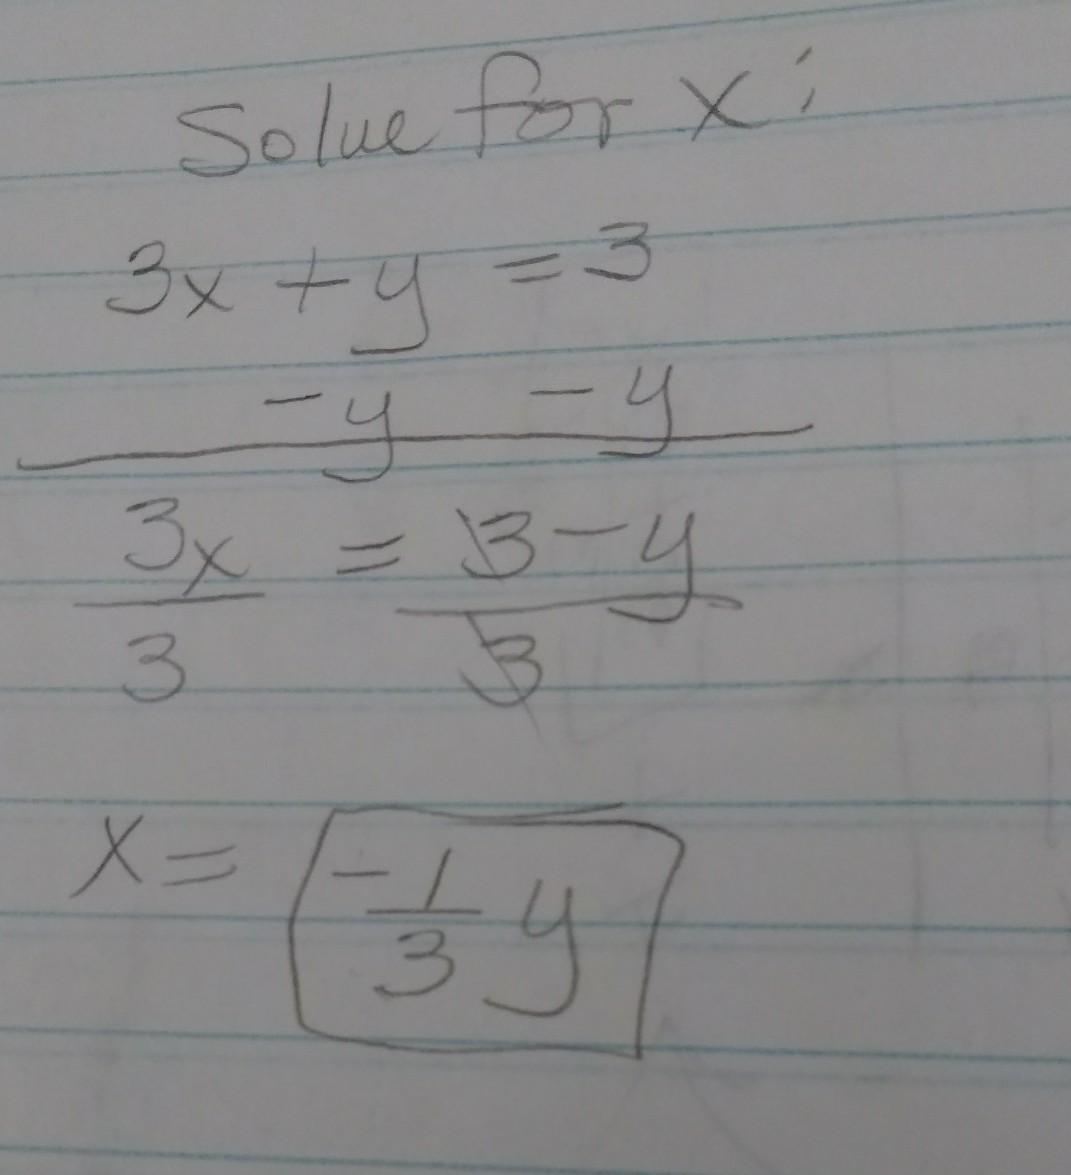 Solve for x:
3x + y = 3
- y - y
3x = 3 - y
3 3
x = - 1 y
3